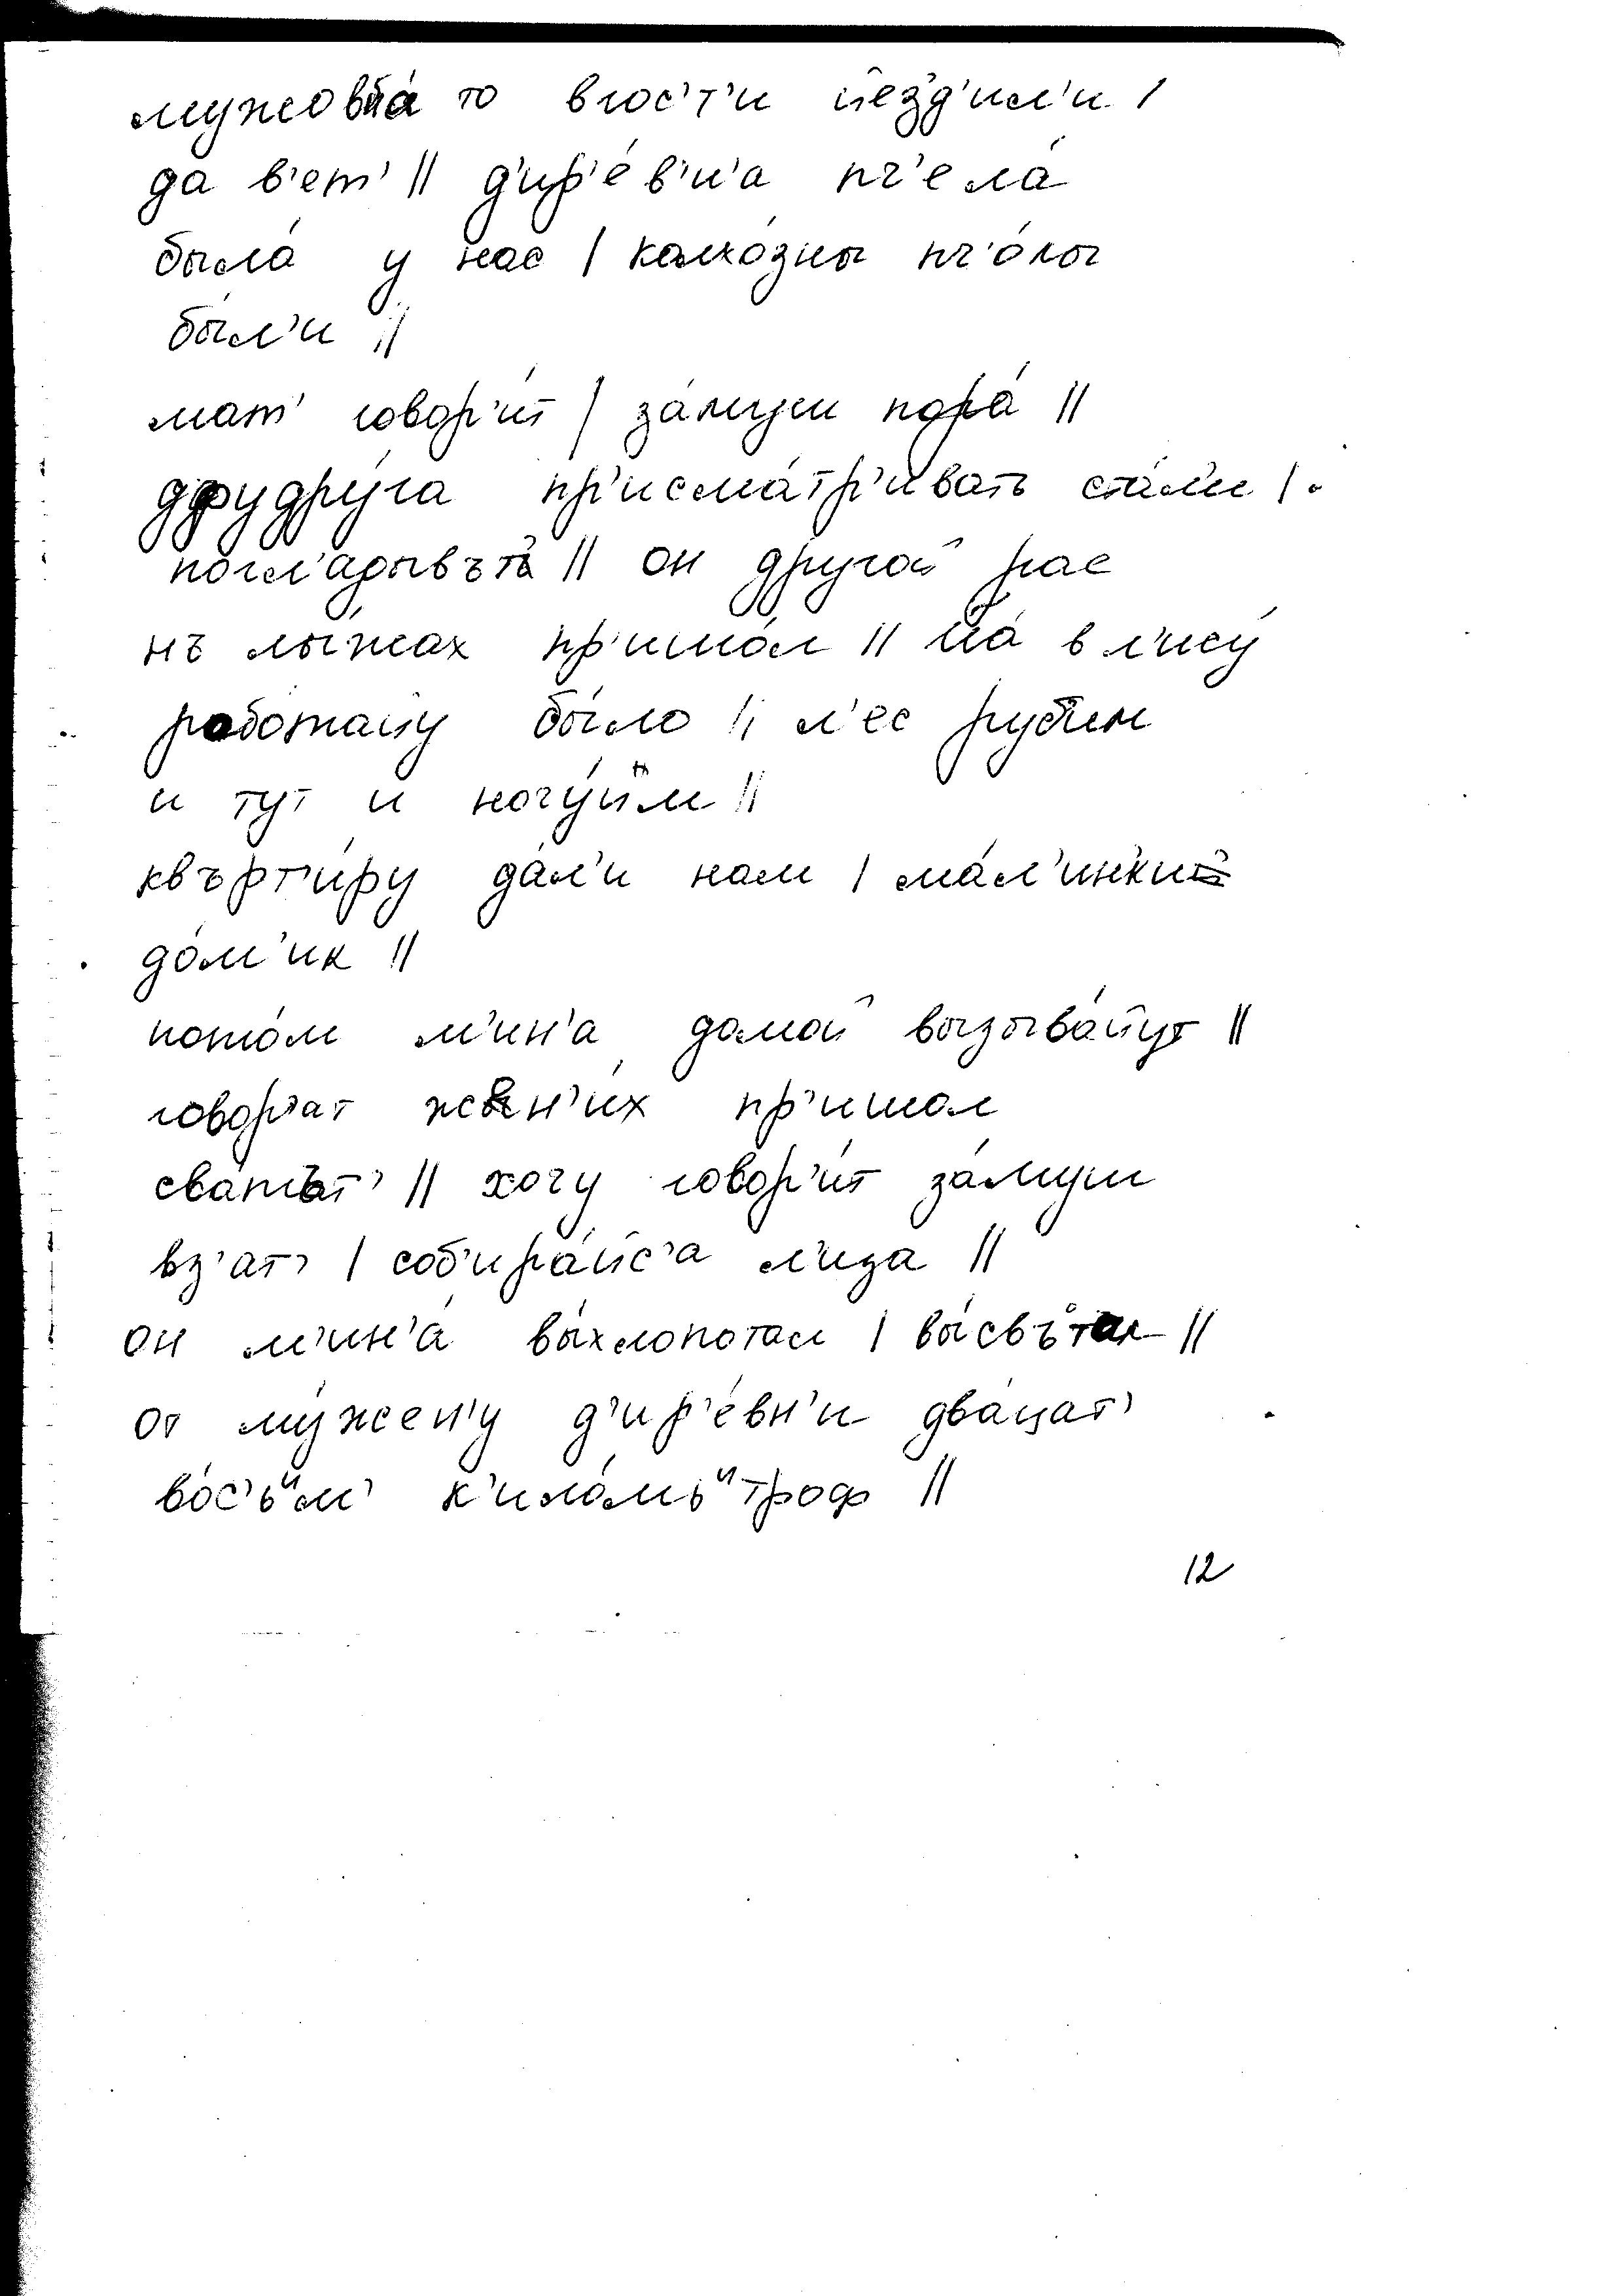 то вгос'т'и йе́зд'ил'и |
да в'ет' || д'ир'е́в'н'а пч'ела́
была́ у нас | калхо́зны пч'о́лы
бы́л'и ||
мат' говор'и́т | за́муш пора́ ||
друдру́га пр'исма́тр'ивать ста́л'и |
|| он другой рас
нъ лы́жах пр'ишо́л || йа́ в л'ису́
работайу бы́ло || л'ес рубим
и тут и ночу́йим ||
къварт'и́ру да́л'и нам | ма́л'инк'ий
до́м'ик ||
пото́м м'ин'а домой вызыва́йут ||
говор'ат жен'и́х пр'ишол
сва́тът' || хочу говор'и́т за́муш
вз'ат' | соб'ира́йс'а л'иза ||
он м'ин'а́ вы́хлопотал | вы́свътал ||
от му́жен'у д'ир'е́вн'и два́цат'
во́с'ьᵘм' к'ило́мьᵘтроф ||
12